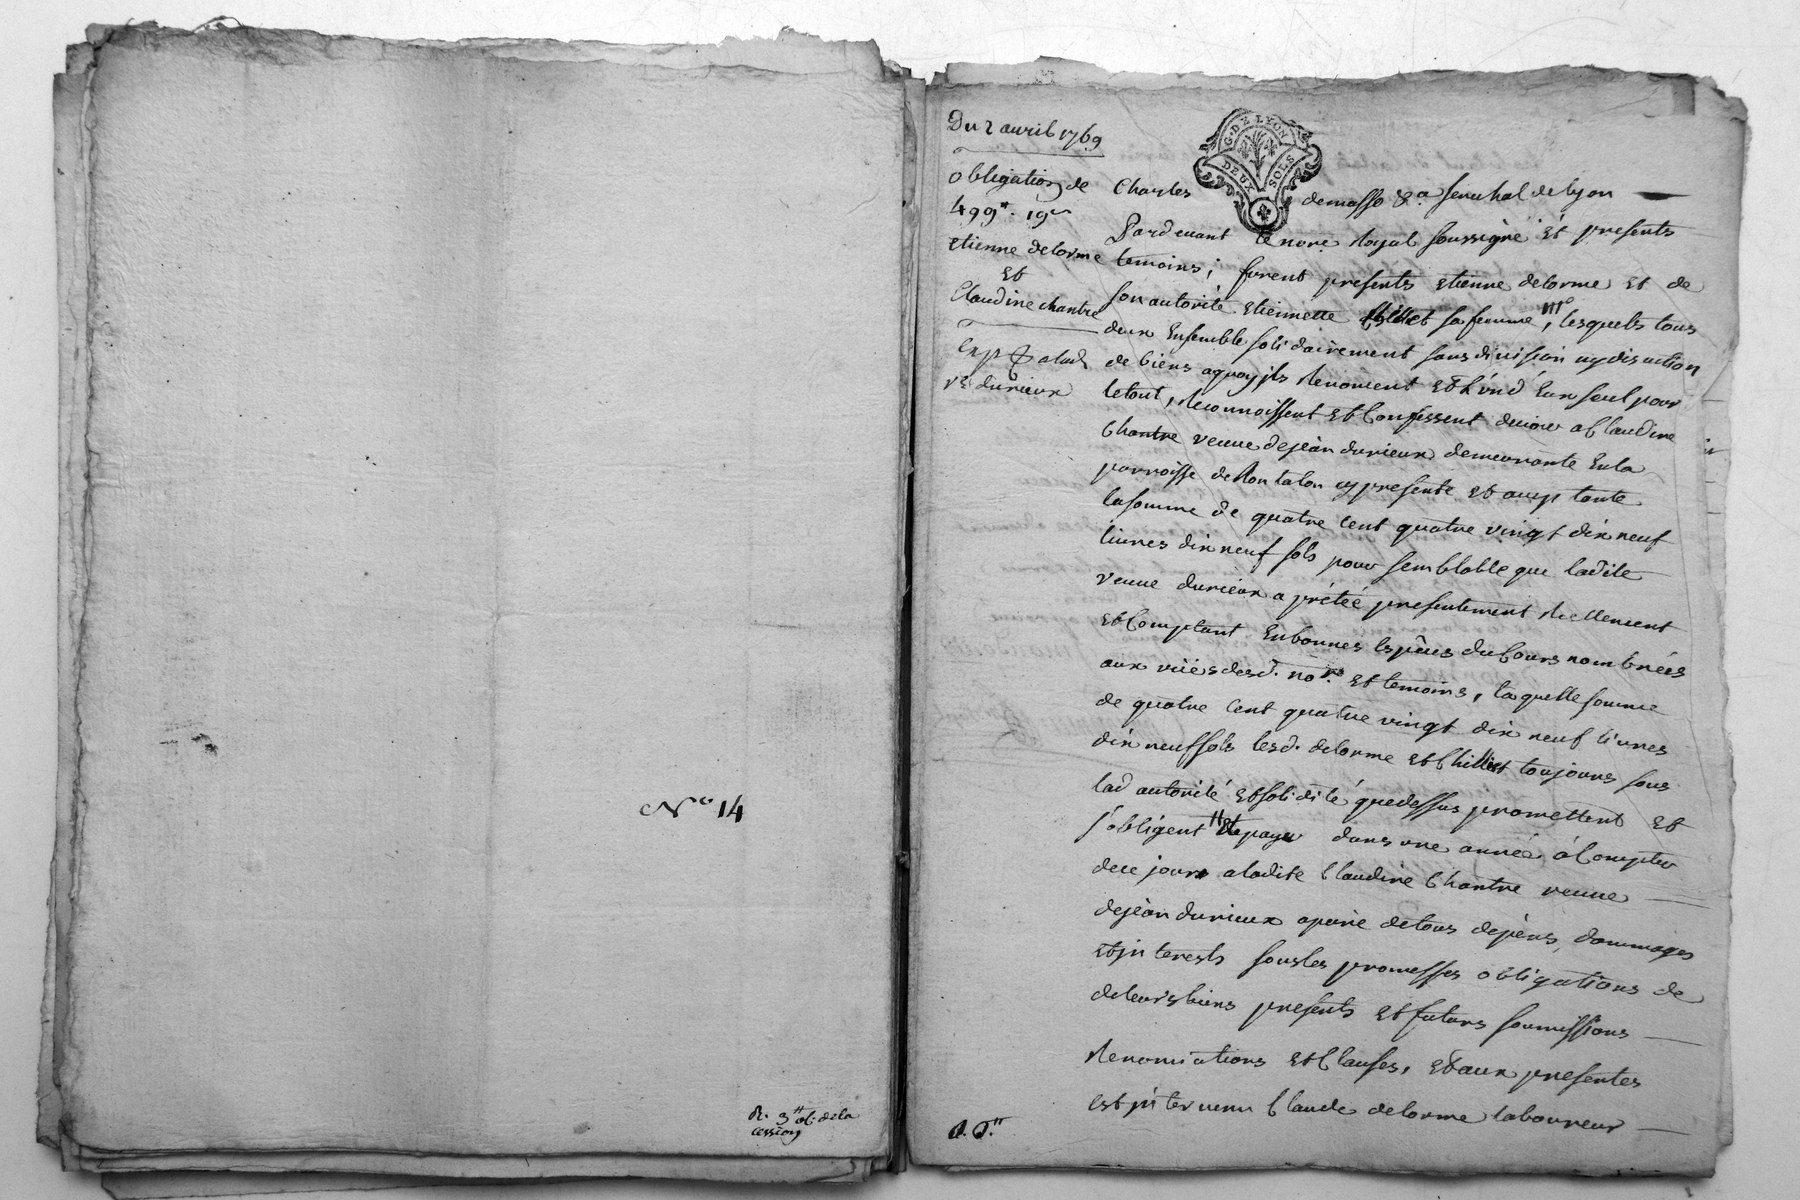 N° 14
R. 3ll ob. de la
cession
Du 2 avril 1769
obligation de
499ll. 19s
etienne delorme
et
Claudine chantre
Exp
ve durieux
G. DE LYON
DEUX SOLS
Charles demasso &.a senechal de lyon
Pardevant le nore Royal soussigné et presents
temoins; furent presents etienne delorme et de
son autorité etiennette sa femme, lesquels tous
deux Ensemble solidairement sans division ny discution
de biens aquoy ils Renoncent et L'und Eux seul pour
letout, Reconnoissent et Confessent devoir a Claudine
Chantre veuve dejean durieux demeurante Enla
parroisse de Rontalon cy presente et acceptante
la somme de quatre Cent quatre vingt dix neuf
livres dix neuf sols pour semblable que ladite
veuve durieux a prétée presentement Reellement
et Comptant En bonnes Espèces du Cours nombrées
aux vües desd. nores et temoins, la quelle somme
de quatre Cent quatre vingt dix neuf livres
dix neuf sols lesd. delorme et toujours sous
lad autorité et solidité quedessus promettent et
s'obligent payer dans une année à Compter
dece jour aladite Claudine Chantre veuve
dejean durieux apeine detous depens, dommages
et interests sous les promesses obligations de
deleurs biens presents et futurs soumissions
Renonciations et Clauses, et aux presentes
est intervenu Claude delorme laboureur